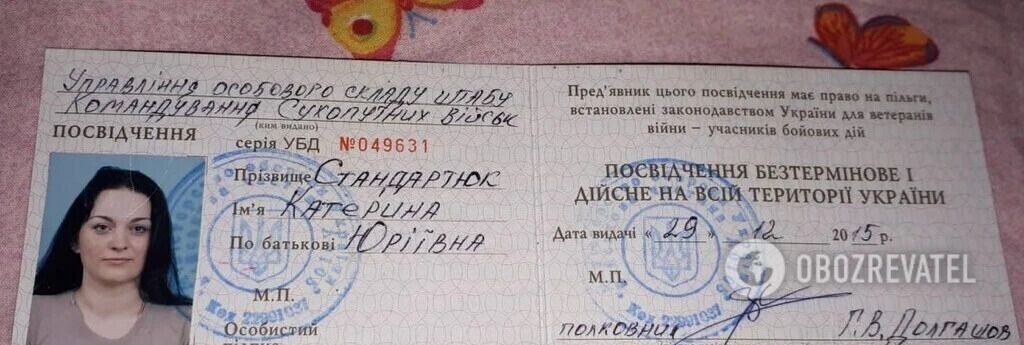 Управління особового складу штабу
Командування Сухопутних військ
(ким видано)
ПОСВІДЧЕННЯ
серія УБД №049631
Прізвище Стандартюк
Ім'я Катерина
По батькові Юріївна
М.П.
Особистий
Пред'явник цього посвідчення має право на пільги,
встановлені законодавством України для ветеранів
війни – учасників бойових дій
ПОСВІДЧЕННЯ БЕЗТЕРМІНОВЕ І
ДІЙСНЕ НА ВСІЙ ТЕРИТОРІЇ УКРАЇНИ
Дата видачі « 29 » 12 2015 р.
М.П.
полковник Г.В. Долгашов
Код 22991037
Код 22991037
OBOZREVATEL